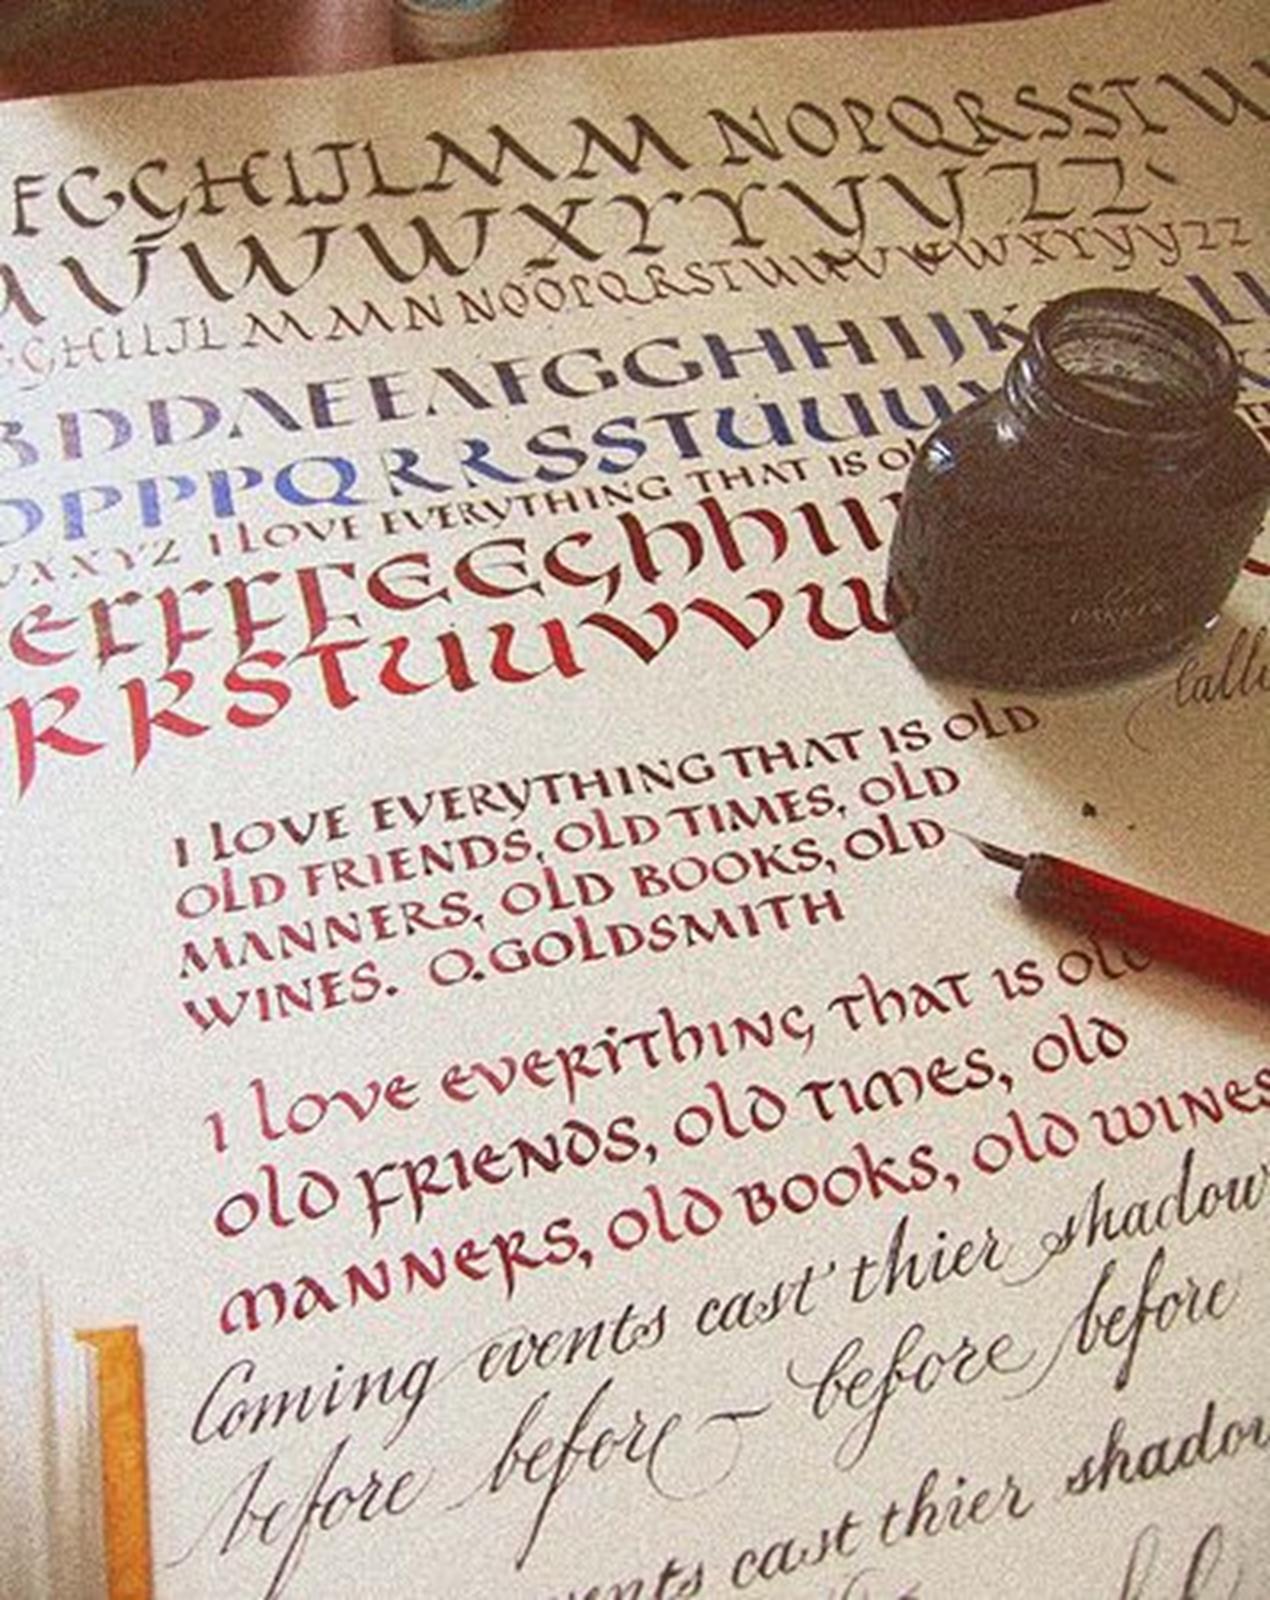 FGGHIJLMM NOPQRSST
UVWWXYYYYZZ
GGHIIJLMMNNOOPQRSTUUVVWWXYYYYZZ
BDDAEEAFGGHHIJK
OPPPQRRSSTUUU
VXXYZ I LOVE EVERYTHING THAT IS OL
errffEEGhhII
RRSTUUVVW
I LOVE EVERYTHING THAT IS OLD
OLD FRIENDS, OLD TIMES, OLD
MANNERS, OLD BOOKS, OLD
WINES. O.GOLDSMITH
I love everithing that is old
old friends, old times, old
manners, old books, old wines
Coming events cast thier shadow
before before – before before
vents cast thier shadow